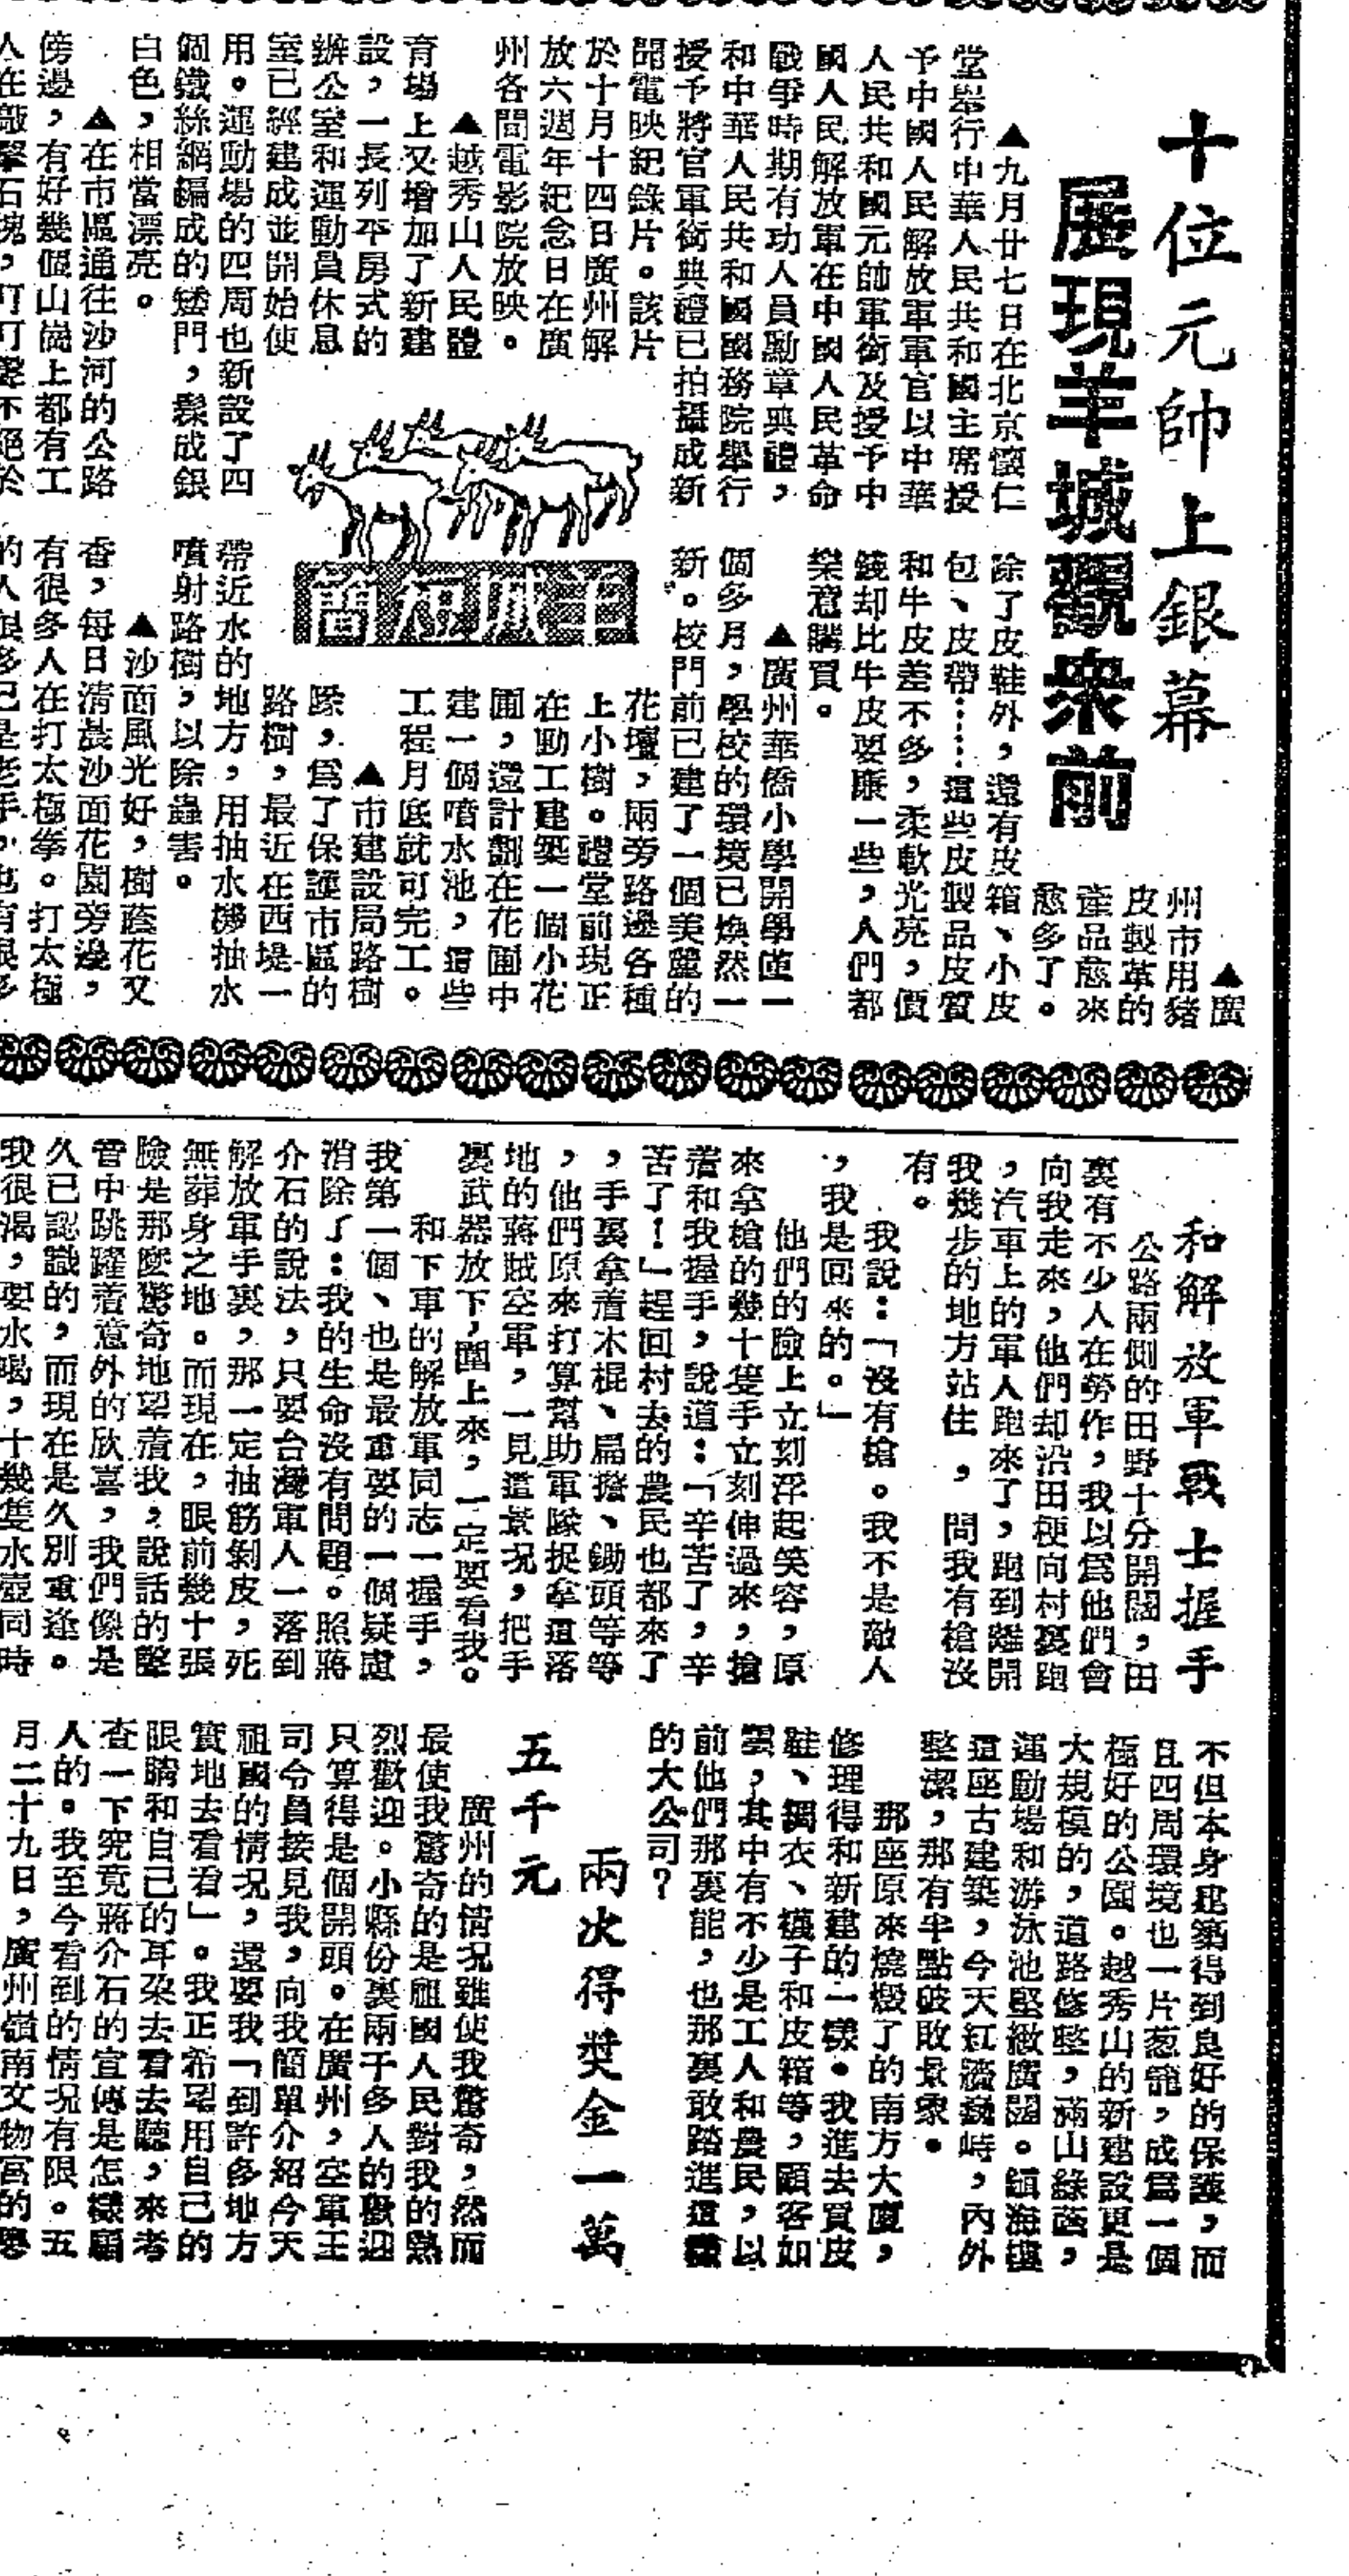 十位元帥上銀幕
展現羊城觀衆前
▲九月廿七日在北京懷仁
堂舉行中華人民共和國主席授
予中國人民解放軍軍官以中華
人民共和國元帥軍銜及授予中
國人民解放軍在中國人民革命
戰爭時期有功人員勳章典禮，
和中華人民共和國國務院舉行
授予將官軍銜典禮已拍攝成新
聞電映紀錄片。該片
於十月十四日廣州解
放六週年紀念日在廣
州各間電影院放映。
▲越秀山人民體
育場上又增加了新建
設，一長列平房式的
辦公室和運動員休息
室已經建成並開始使
用。運動場的四周也新設了四
個鐵絲網編成的矮門，髹成銀
白色，相當漂亮。
▲在市區通往沙河的公路
傍邊，有好幾個山崗上都有工
人在敲擊石塊，叮叮聲不絕於
羊城短簡
▲廣
州市用豬
皮製革的
產品愈來
愈多了。
除了皮鞋外，還有皮箱、小皮
包、皮帶……這些皮製品皮質
和牛皮差不多，柔軟光亮，價
錢却比牛皮要廉一些，人們都
樂意購買。
▲廣州華僑小學開學僅一
個多月，學校的環境已煥然一
新。校門前已建了一個美麗的
花壇，兩旁路邊各種
上小樹。禮堂前現正
在動工建築一個小花
圃，還計劃在花圃中
建一個噴水池，這些
工程月底就可完工。
▲市建設局路樹
隊，爲了保護市區的
路樹，最近在西堤一
帶近水的地方，用抽水機抽水
噴射路樹，以除蟲害。
▲沙面風光好，樹蔭花又
香，每日清晨沙面花園旁邊，
有很多人在打太極拳。打太極
的人很多已是老手，也有很多
和解放軍戰士握手
公路兩側的田野十分開闊，田
裏有不少人在勞作，我以爲他們會
向我走來，他們却沿田梗向村裏跑
，汽車上的軍人跑來了，跑到離開
我幾步的地方站住，問我有槍沒
有。
我說：「沒有槍。我不是敵人
，我是回來的。」
他們的臉上立刻浮起笑容，原
來拿槍的幾十隻手立刻伸過來，搶
着和我握手，說道：「辛苦了，辛
苦了！」趕回村去的農民也都來了
，手裏拿着木棍、扁擔、鋤頭等等
，他們原來打算幫助軍隊捉拿這落
地的蔣賊空軍，一見這景况，把手
裏武器放下，圍上來，一定要看我。
和下車的解放軍同志一握手，
我第一個、也是最重要的一個疑慮
消除了：我的生命沒有問題。照蔣
介石的說法，只要台灣軍人一落到
解放軍手裏，那一定抽筋剝皮，死
無葬身之地。而現在，眼前幾十張
臉是那麼驚奇地望着我，說話的聲
音中跳躍着意外的欣喜，我們像是
久已認識的，而現在是久別重逢。
我很渴，要水喝，十幾隻水壺同時
不但本身建築得到良好的保護，而
且四周環境也一片葱籠，成爲一個
極好的公園。越秀山的新建設更是
大規模的，道路修整，滿山綠蔭，
運動場和游泳池堅緻廣闊。鎮海樓
這座古建築，今天紅牆巍峙，內外
整潔，那有半點破敗景象。
那座原來燒燬了的南方大廈，
修理得和新建的一樣。我進去買皮
鞋、襯衣、襪子和皮箱等，顧客如
雲，其中有不少是工人和農民，以
前他們那裏能，也那裏敢踏進這樣
的大公司？
兩次得奬金一萬
五千元
廣州的情况雖使我驚奇，然而
最使我驚奇的是祖國人民對我的熱
烈歡迎。小縣份裏兩千多人的歡迎
只算得是個開頭。在廣州，空軍王
司令員接見我，向我簡單介紹今天
祖國的情况，還要我「到許多地方
實地去看看」。我正希望用自己的
眼睛和自己的耳朶去看去聽，來考
查一下究竟蔣介石的宣傳是怎樣騙
人的。我至今看到的情况有限。五
月二十九日，廣州嶺南文物宮的